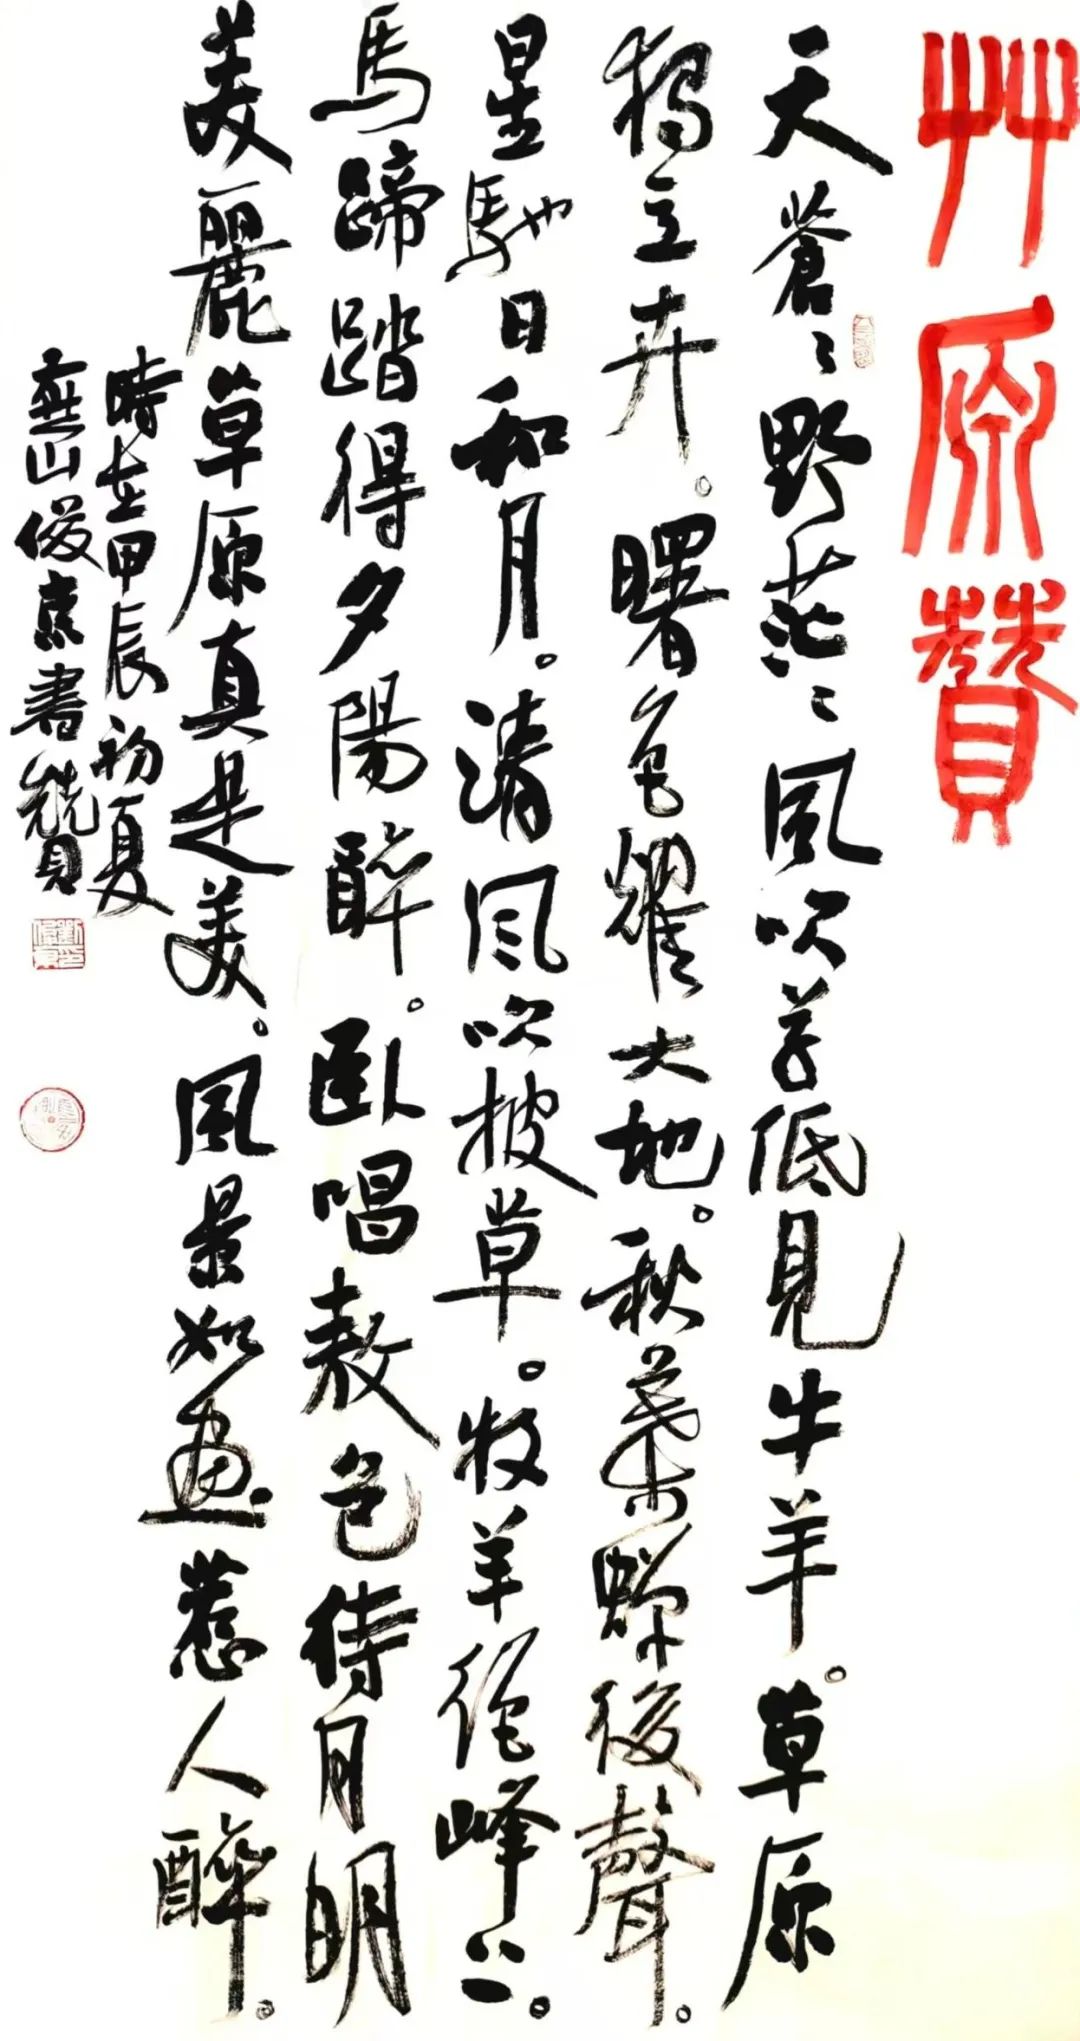 艸原贊
天蒼々野茫々風吹草低見牛羊。草原
獨立卉。曙色耀大地。秋葉蟬後聲。
星馳日和月。清風吹披草。牧羊繞峰上。
馬蹄踏得夕陽醉。臥唱敖包待月明
美麗草原真是美。風景如畫惹人醉。
時在甲辰初夏
燕山俊京書贊